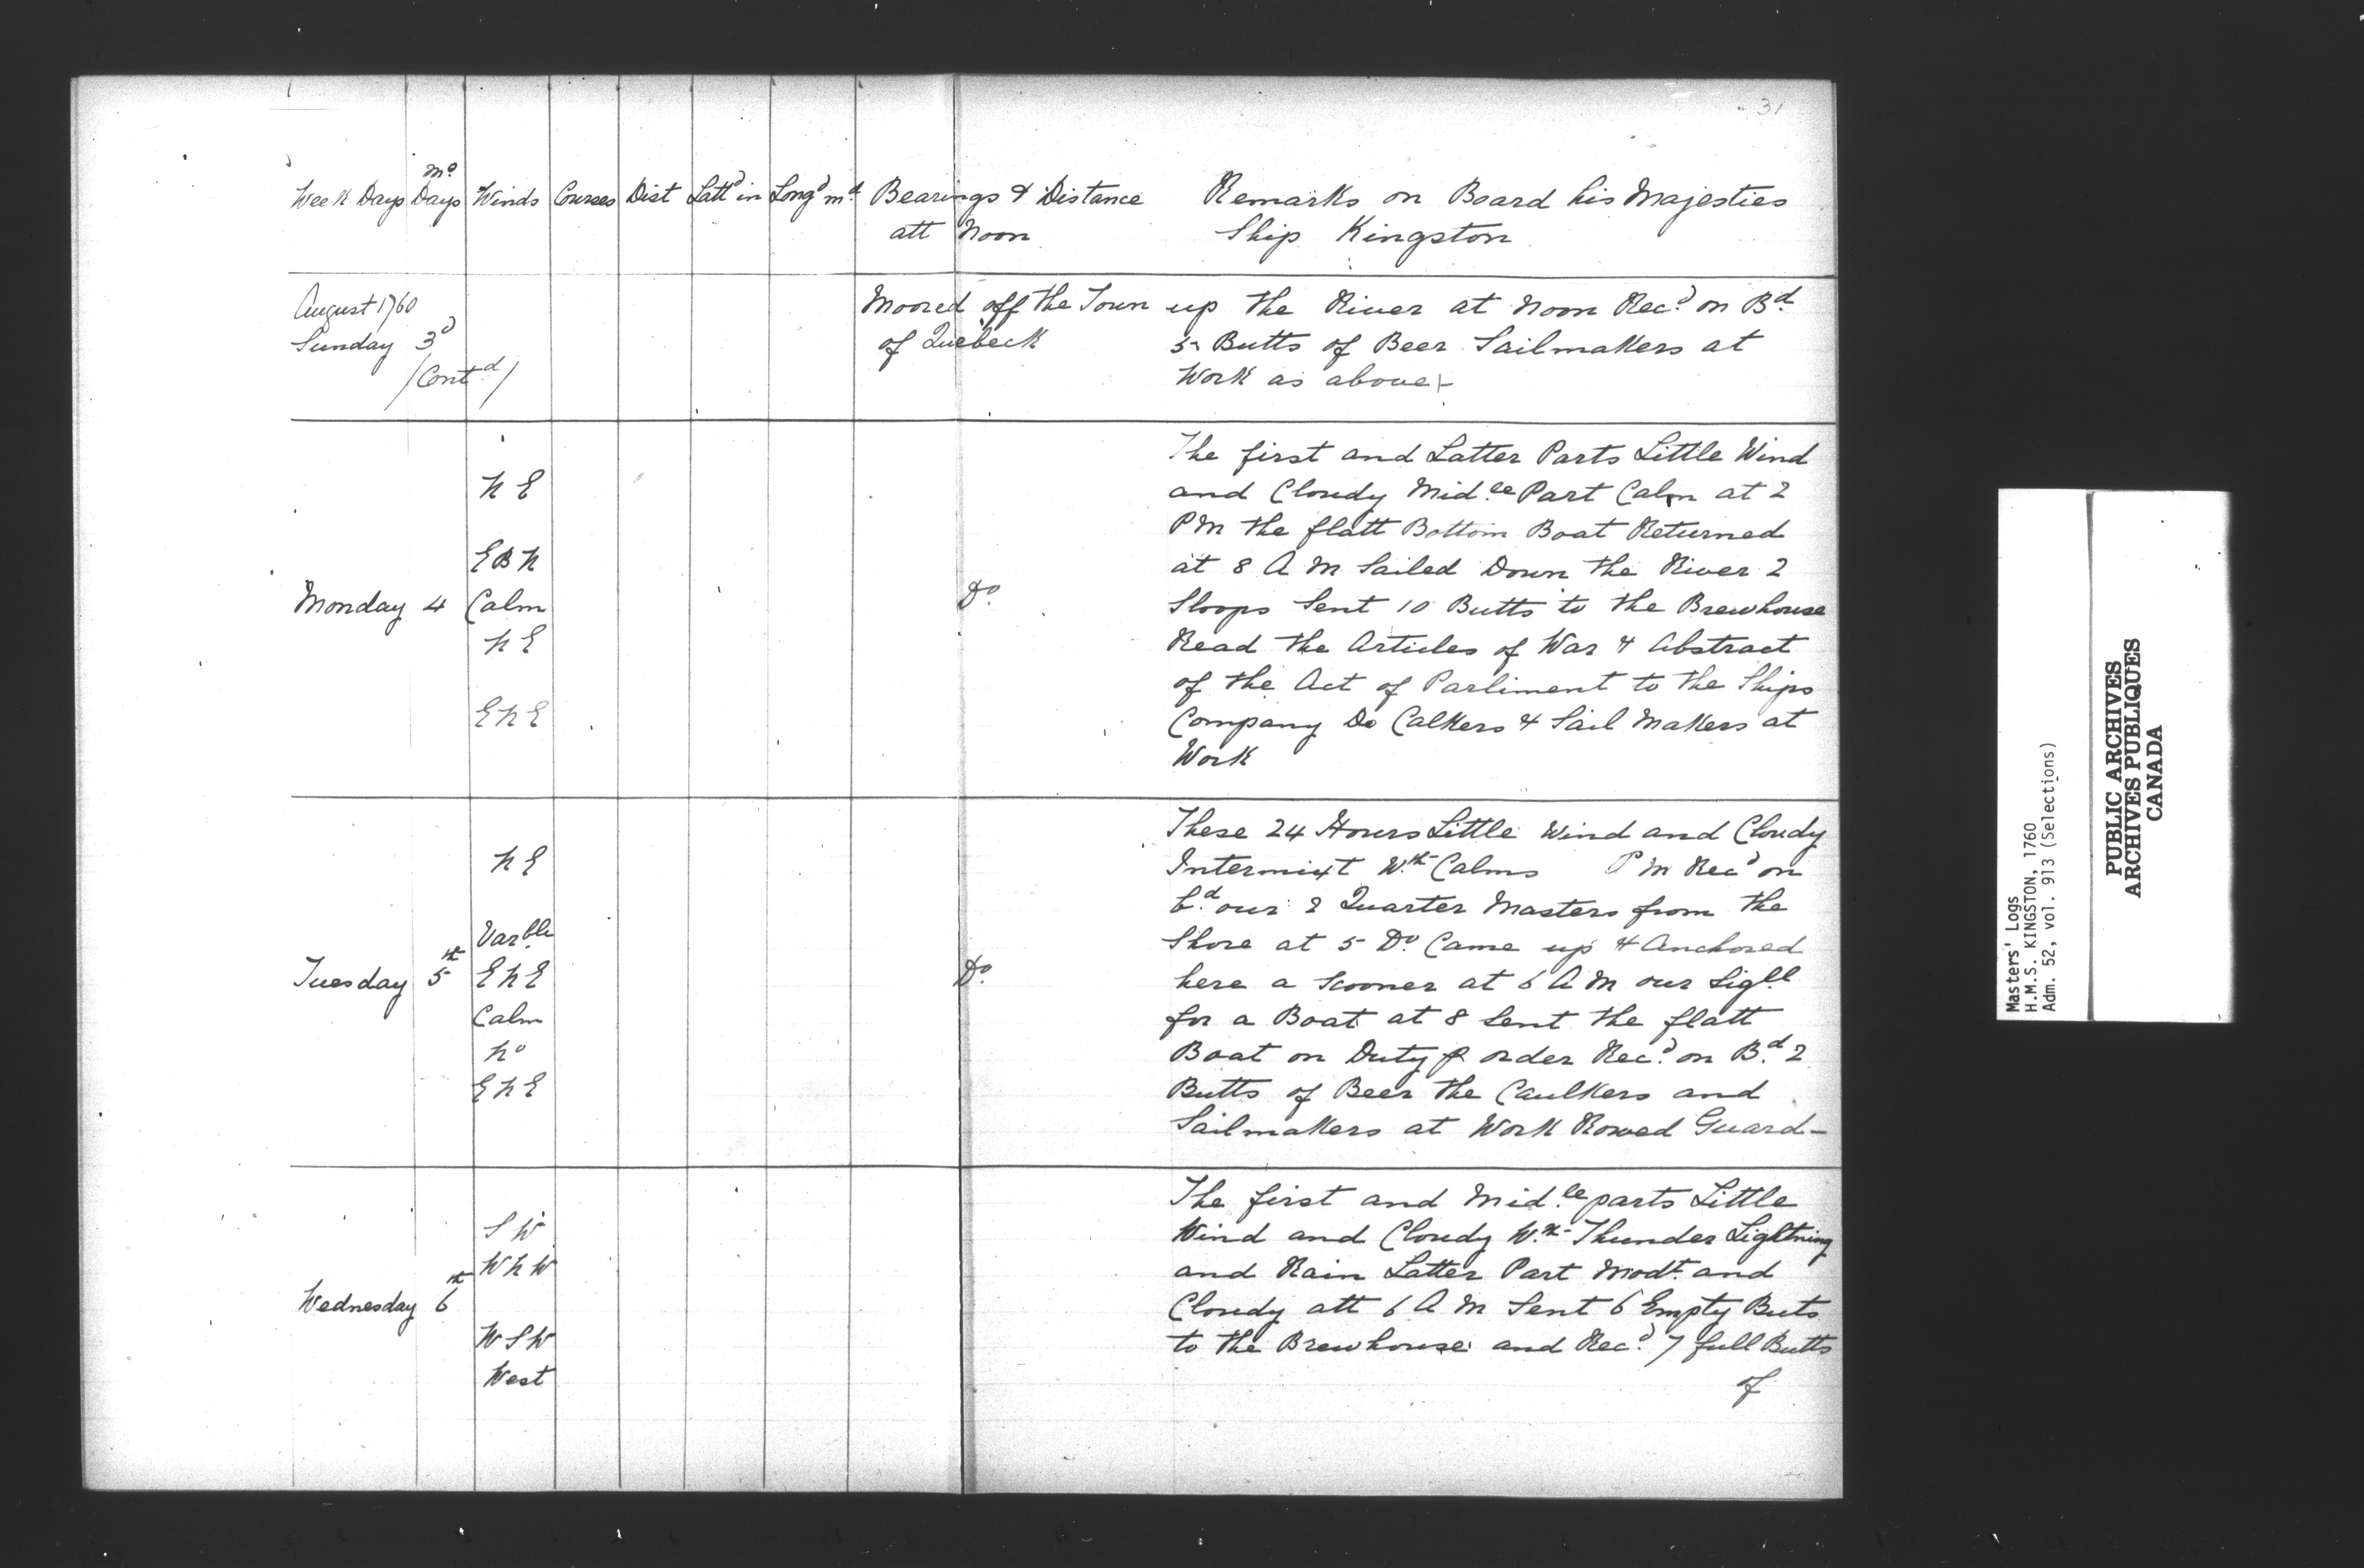 31
Week Days Mo Days Winds Courses Dist Lattd in Longd md Bearings & Distance att Noon Remarks on Board his Majesties Ship Kingston
August 1760
Sunday 3d
/Contd/
Moored off the Town
of Quebeck
up the River at Noon Recd on Bd
5 Butts of Beer Sailmakers at
Work as above
Monday 4
N E
E B N
Calm
N E
E N E
Do
The first and Latter Parts Little Wind
and Cloudy Midle Part Calm at 2
P M the flatt Bottom Boat Returned
at 8 A M Sailed Down the River 2
Sloops Sent 10 Butts to the Brewhouse
Read the Articles of War & Abstract
of the Act of Parliment to the Ships
Company Do Calkers & Sail Makers at
Work
Tuesday 5th
N E
Varble
E N E
Calm
No
E N E
Do
These 24 Hours Little Wind and Cloudy
Intermixt Wth Calms P M Recd on
bd our 2 Quarter Masters from the
Shore at 5 Do Came up & Anchored
here a Scooner at 6 A M our Sigll
for a Boat at 8 Sent the flatt
Boat on Duty p order Recd on Bd 2
Butts of Beer the Caulkers and
Sailmakers at Work Rowed Guard-
Wednesday 6th
S W
W N W
W S W
West
The first and Midle parts Little
Wind and Cloudy Wth Thunder Lightning
and Rain Latter Part Modt and
Cloudy att 6 A M Sent 6 Empty Buts
to the Brewhouse and Recd 7 full Butts
of
Masters' Logs
H.M.S. KINGSTON, 1760
Adm. 52, vol. 913 (Selections)
PUBLIC ARCHIVES
ARCHIVES PUBLIQUES
CANADA